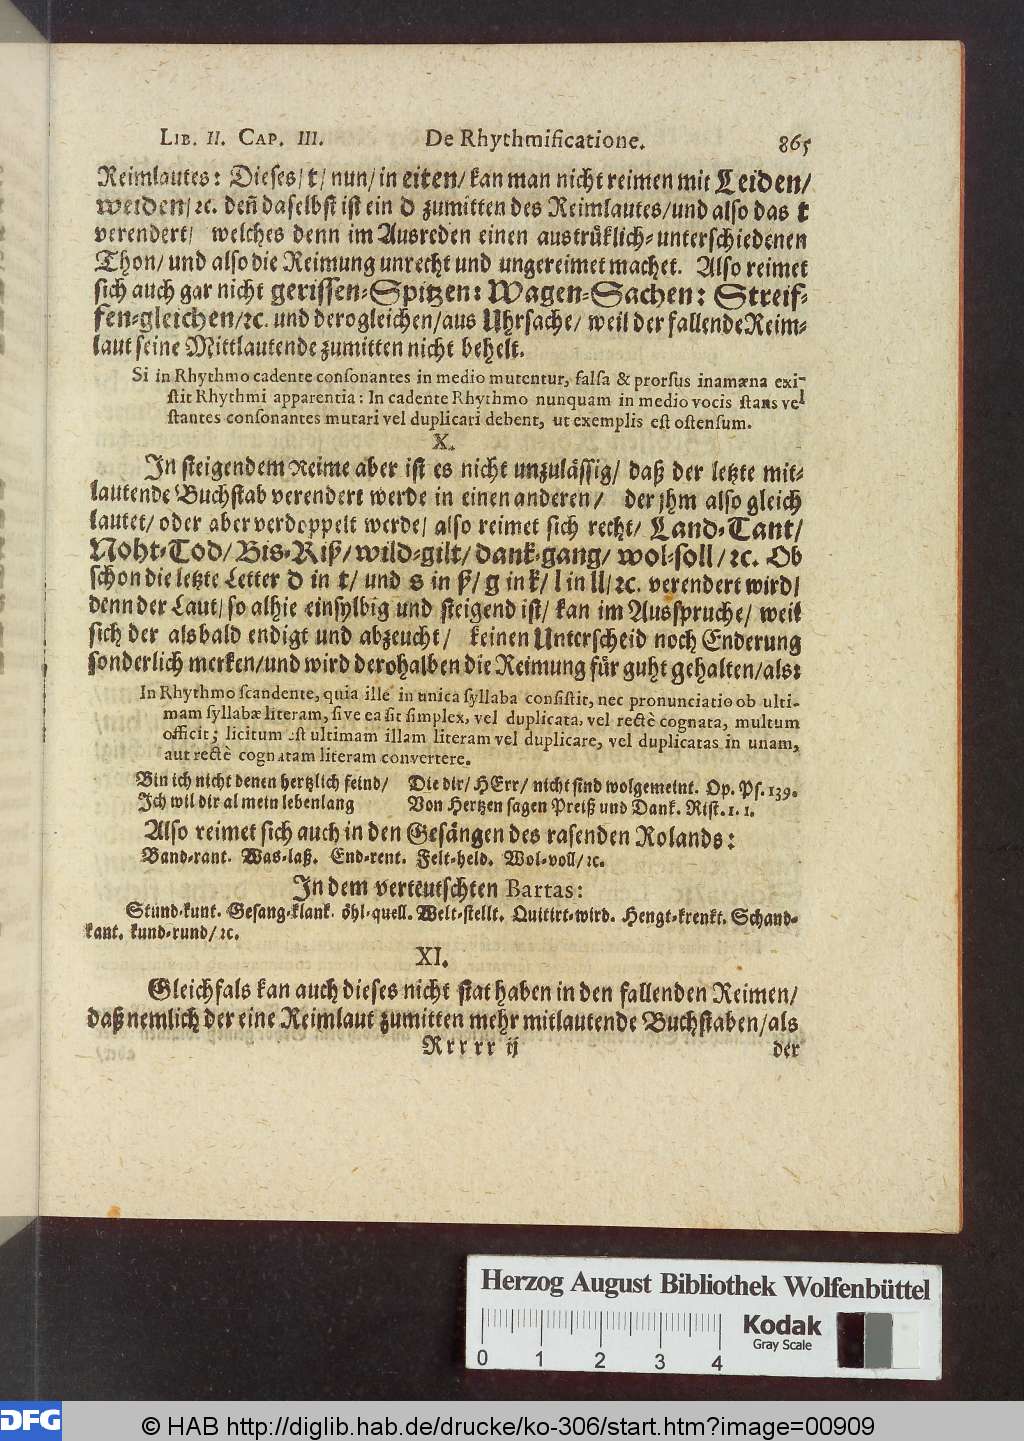 LIB. II. CAP. III. De Rhythmificatione. 865
Reimlautes: Dieses/ t/ nun/ in eiten/ kan man nicht reimen mit Leiden/
weiden/ ꝛc. deñ daselbst ist ein d zumitten des Reimlautes/ und also das t
verendert/ welches denn im Ausreden einen austrüklich-unterschiedenen
Thon/ und also die Reimung unrecht und ungereimet machet. Also reimet
sich auch gar nicht gerissen-Spitzen: Wagen-Sachen: Streif-
fen-gleichen/ ꝛc. und derogleichen/ aus Uhrsache/ weil der fallende Reim-
laut seine Mittlautende zumitten nicht behelt.
Si in Rhythmo cadente consonantes in medio mutentur, falsa & prorsus inamæna exi-
stit Rhythmi apparentia: In cadente Rhythmo nunquam in medio vocis stans vel
stantes consonantes mutari vel duplicari debent, ut exemplis est ostensum.
X.
In steigendem Reime aber ist es nicht unzulässig/ daß der letzte mit-
lautende Buchstab verendert werde in einen anderen/ der jhm also gleich
lautet/ oder aber verdoppelt werde/ also reimet sich recht/ Land-Tant/
Noht-Tod/ Bis-Riß/ wild-gilt/ dank-gang/ wol-soll/ ꝛc. Ob
schon die letzte Letter d in t/ und s in ß/ g in k/ l in ll/ ꝛc. verendert wird/
denn der Laut/ so alhie einsylbig und steigend ist/ kan im Ausspruche/ weil
sich der alsbald endigt und abzeucht/ keinen Unterscheid noch Enderung
sonderlich merken/ und wird derohalben die Reimung für guht gehalten/ als:
In Rhythmo scandente, quia ille in unica syllaba consistit, nec pronunciatio ob ulti-
mam syllabæ literam, sive ea sit simplex, vel duplicata, vel rectè cognata, multum
officit; licitum est ultimam illam literam vel duplicare, vel duplicatas in unam,
aut rectè cognatam literam convertere.
Bin ich nicht denen hertzlich feind/ Die dir/ HErr/ nicht sind wolgemeint. Op. Ps. 139.
Ich wil dir al mein lebenlang Von Hertzen sagen Preiß und Dank. Rist. 1. 1.
Also reimet sich auch in den Gesängen des rasenden Rolands:
Band-rant. Was-laß. End-rent. Felt-held. Wol-voll/ ꝛc.
In dem verteutschten Bartas:
Stund-kunt. Gesang-klank. öhl-quell. Welt-stellt. Quitirt-wird. Hengt-krenkt. Schand-
kant. kund-rund/ ꝛc.
XI.
Gleichfals kan auch dieses nicht stat haben in den fallenden Reimen/
daß nemlich der eine Reimlaut zumitten mehr mitlautende Buchstaben/ als
Rrrrr ij der
Herzog August Bibliothek Wolfenbüttel
Kodak
Gray Scale
0 1 2 3 4
DFG © HAB http://diglib.hab.de/drucke/ko-306/start.htm?image=00909